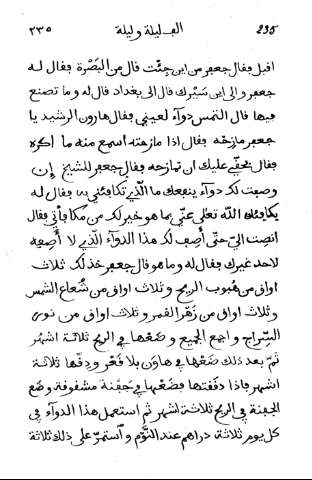 ٢٣٥ الف ليلة وليلة 235
اقبل فقال جعفر من اين جئت قال من البَصْرة فقال له
جعفر والى اين سَيْرك قال الى بغداد قال له وما تصنع
فيها قال التمس دوآء لعيني فقال هارون الرشيد يا
جعفر مازحه فقال اذا مازحته اسمع منه ما اكره
فقال بحقّي عليك ان تمازحه فقال جعفر للشيخ إن
وصفت لك دوآء ينفعك ما الّذي تكافئني به فقال له
يكافئك الله تعلى عنّي بما هو خير لك من مكافأتي فقال
انصت اليّ حتّى أصف لك هذا الدوآء الّذي لا أصفه
لاحد غيرك فقال له وما هو قال جعفر خذ لك ثلاث
اواق من هُبوب الريح وثلاث اواق من شُعاع الشمس
وثلاث اواق من زَهَر القمر وثلاث اواق من نور
السِّراج واجمع الجميع وضَعْها في الريح ثلاثة اشهُر
ثمّ بعد ذلك ضَعْها في هاون بلا قَعْر ودقّها ثلاثة
اشهر فاذا دققتها فضَعْها في جَفنة مشقوقة وضع
الجفنة في الريح ثلاثة اشهر ثم استعمل هذا الدوآء في
كل يوم ثلاثة دراهم عند النَّوْم وآستمرّ على ذلك ثلاثة